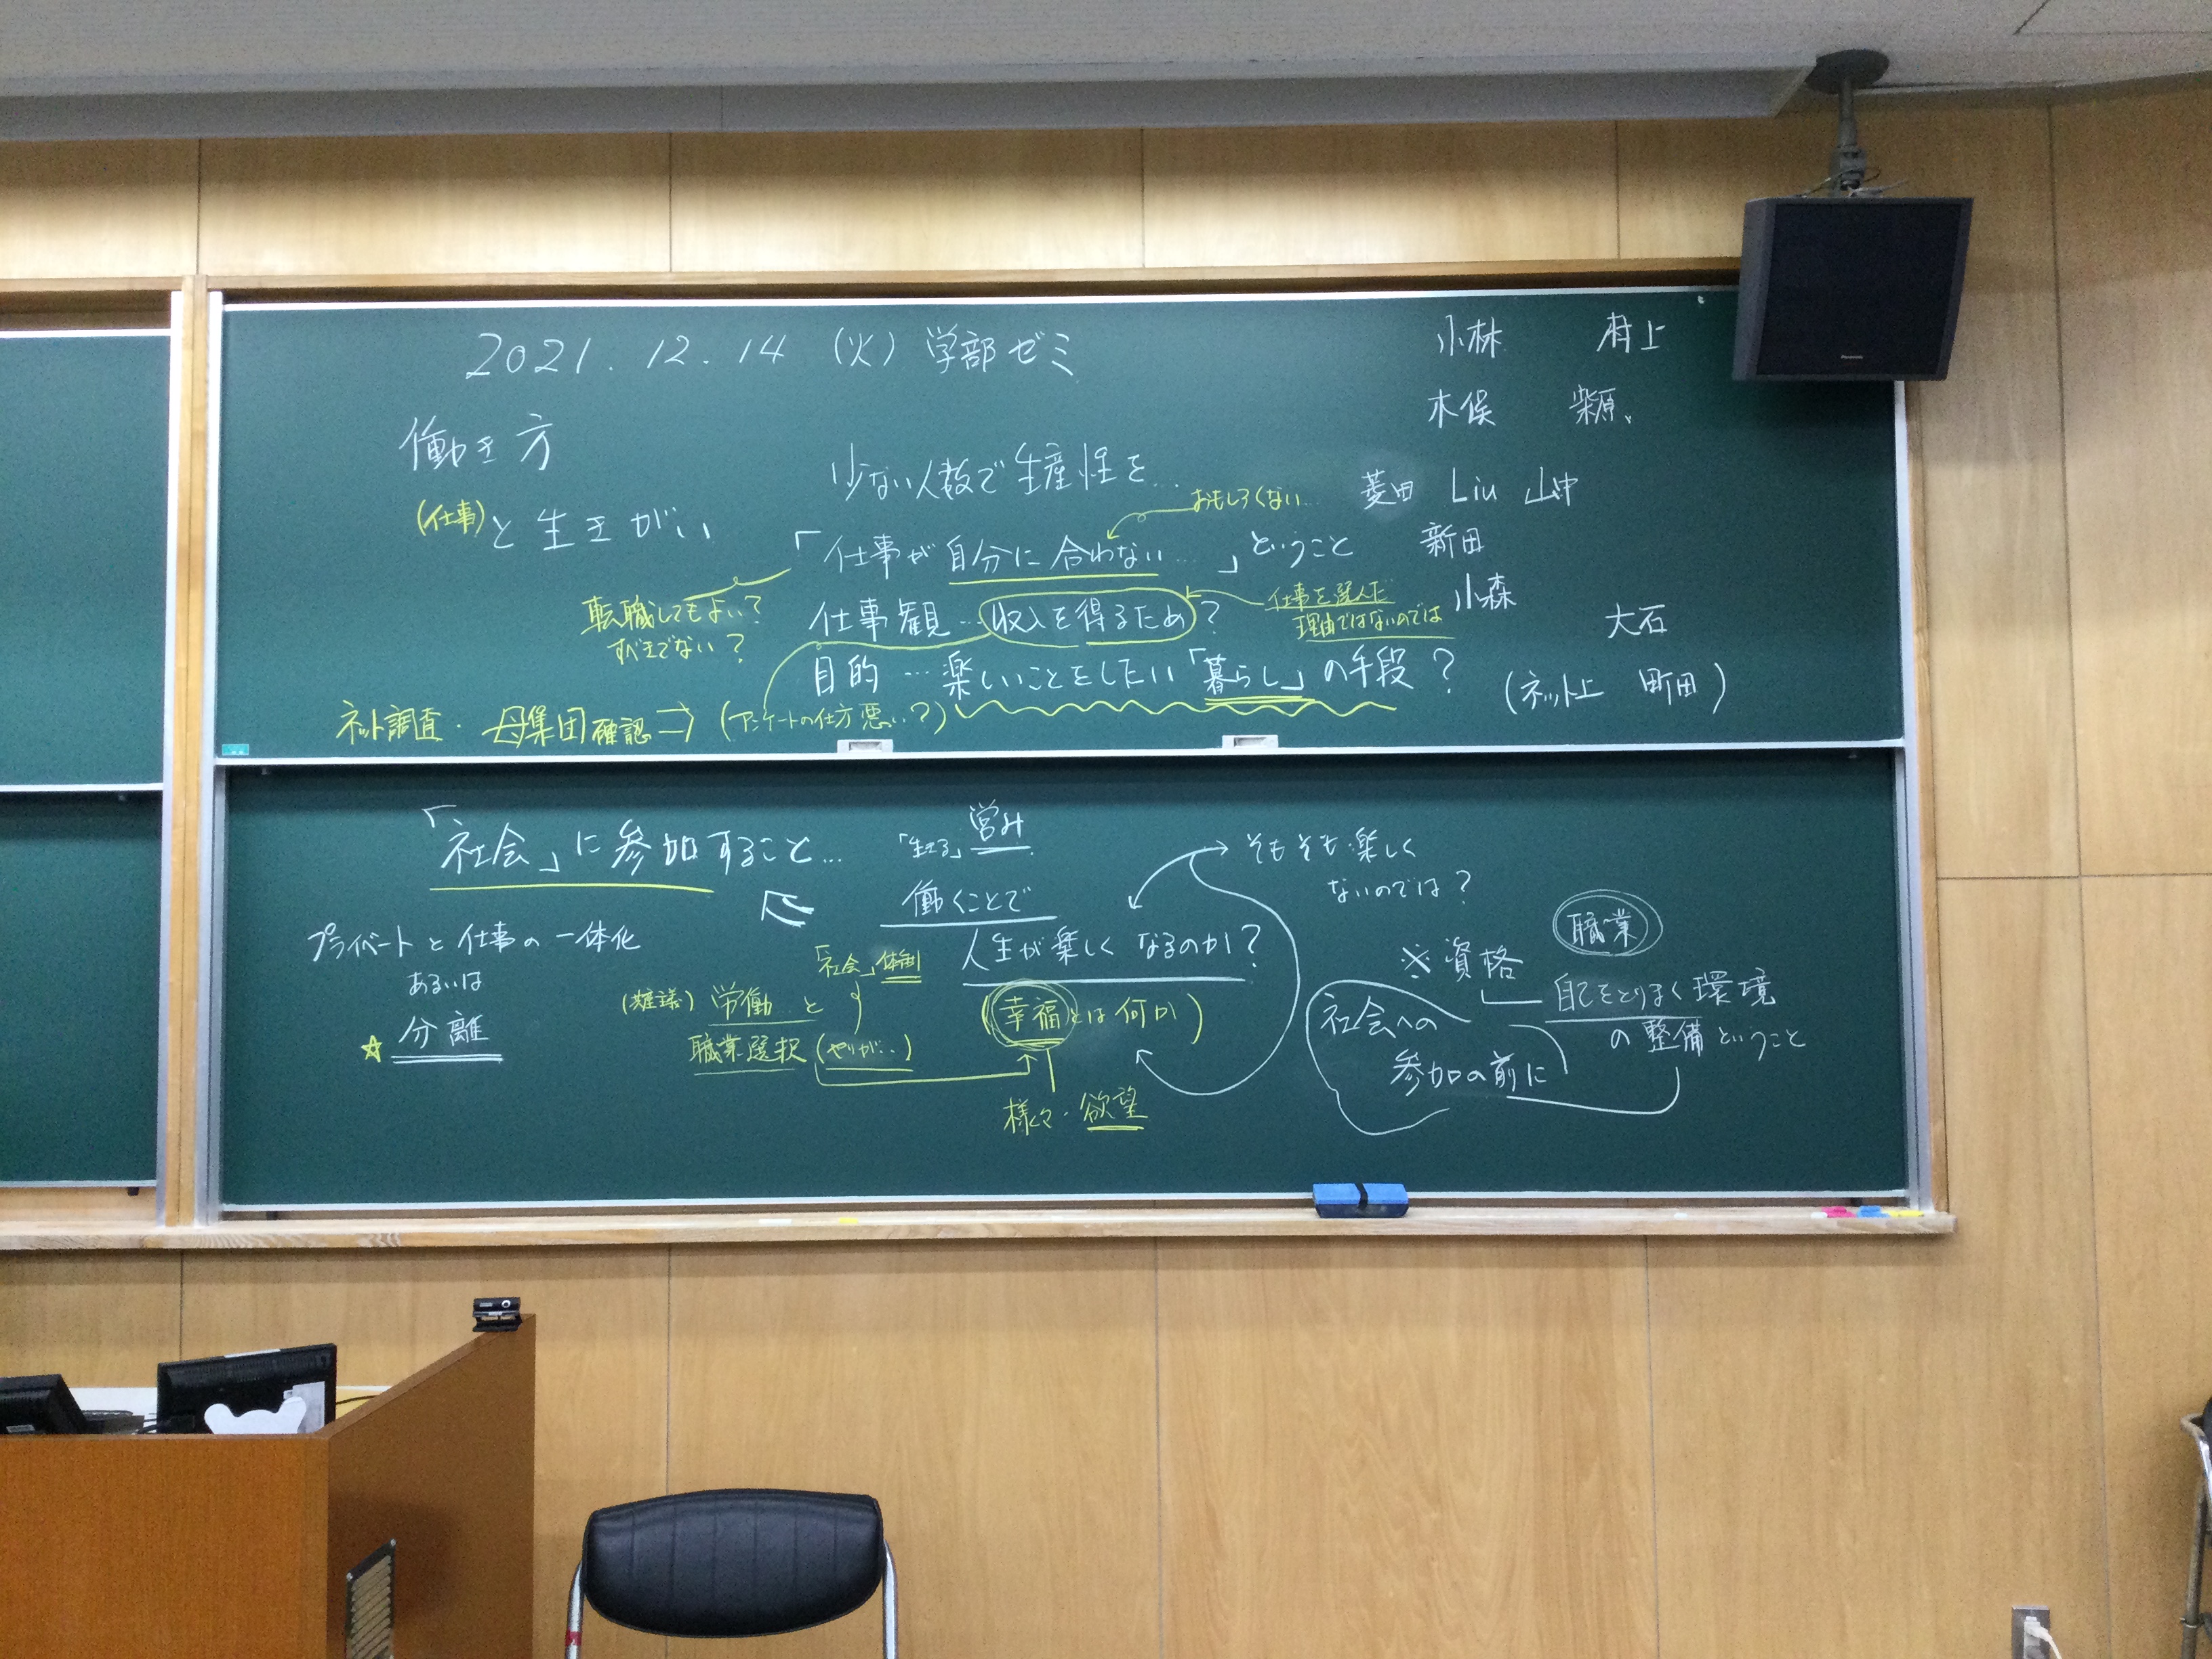 2021.12.14 (火) 学部ゼミ
小林 村上
木俣 柴原、
働き方
(仕事)と生きがい
少ない人数で生産性を…
おもしろくない…
菱田 Liu 山中
「仕事が自分に合わない…」ということ
新田
転職してもよい?
すべきでない?
仕事観…収入を得るため?
仕事を選んだ
理由ではないのでは
小森
大石
目的…楽しいことをしたい「暮らし」の手段?
(ネット上 町田)
ネット調査・母集団確認→(アンケートの仕方悪い?)
「社会」に参加すること…
「生きる」営み
働くことで
人生が楽しくなるのか?
そもそも楽しく
ないのでは?
プライベートと仕事の一体化
あるいは
☆分離
「社会」体制
労働と
職業選択(やりがい)
(幸福とは何か)
様々・欲望
職業
※資格
自己をとりまく環境
の整備ということ
社会への
参加の前に
Panasonic